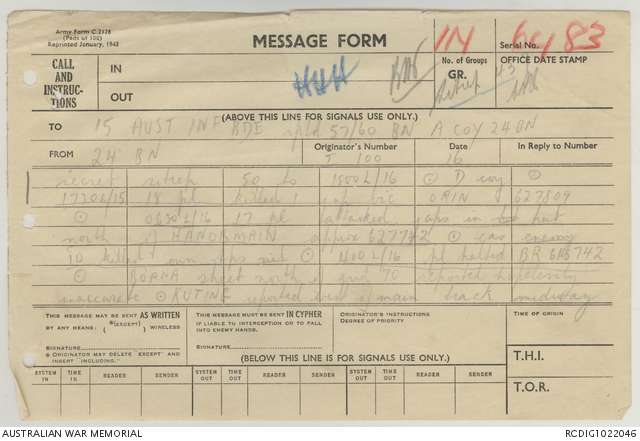 Army Form C.2128
(Pads of 100)
Reprinted January, 1943
MESSAGE FORM
IN 60/83
Serial No.
CALL AND INSTRUCTIONS
IN
OUT
HHH
No. of Groups
GR.
OFFICE DATE STAMP
(ABOVE THIS LINE FOR SIGNALS USE ONLY.)
TO 15 AUST INF BDE 57/60 BN A COY 24 BN
FROM 24 BN
Originator's Number
T 100
Date
16
In Reply to Number
secret sitrep 50 to 1800L/16 ⊙ D coy ⊙
172206/15 18 pl killed 1 jap vic ORIN 627809
⊙ 0630L/16 17 pl attacked japs in hut
north of HANDMAIN approx 627742 ⊙ cas enemy
10 killed own ⊙ 1400L/16 pl halted BR 616742
⊙ BORNA sheet north and 70 reported hopelessly
inaccurate ⊙ KUTINE reported main track midway
THIS MESSAGE MAY BE SENT AS WRITTEN
BY ANY MEANS. (EXCEPT) WIRELESS
SIGNATURE
⊙ ORIGINATOR MAY DELETE EXCEPT AND
INSERT "INCLUDING."
THIS MESSAGE MUST BE SENT IN CYPHER
IF LIABLE TO INTERCEPTION OR TO FALL
INTO ENEMY HANDS.
SIGNATURE
ORIGINATOR'S INSTRUCTIONS
DEGREE OF PRIORITY
TIME OF ORIGIN
(BELOW THIS LINE IS FOR SIGNALS USE ONLY.)
T.H.I.
T.O.R.
SYSTEM IN TIME IN READER SENDER SYSTEM OUT TIME OUT READER SENDER SYSTEM OUT TIME OUT READER SENDER
AUSTRALIAN WAR MEMORIAL
RCDIG1022046